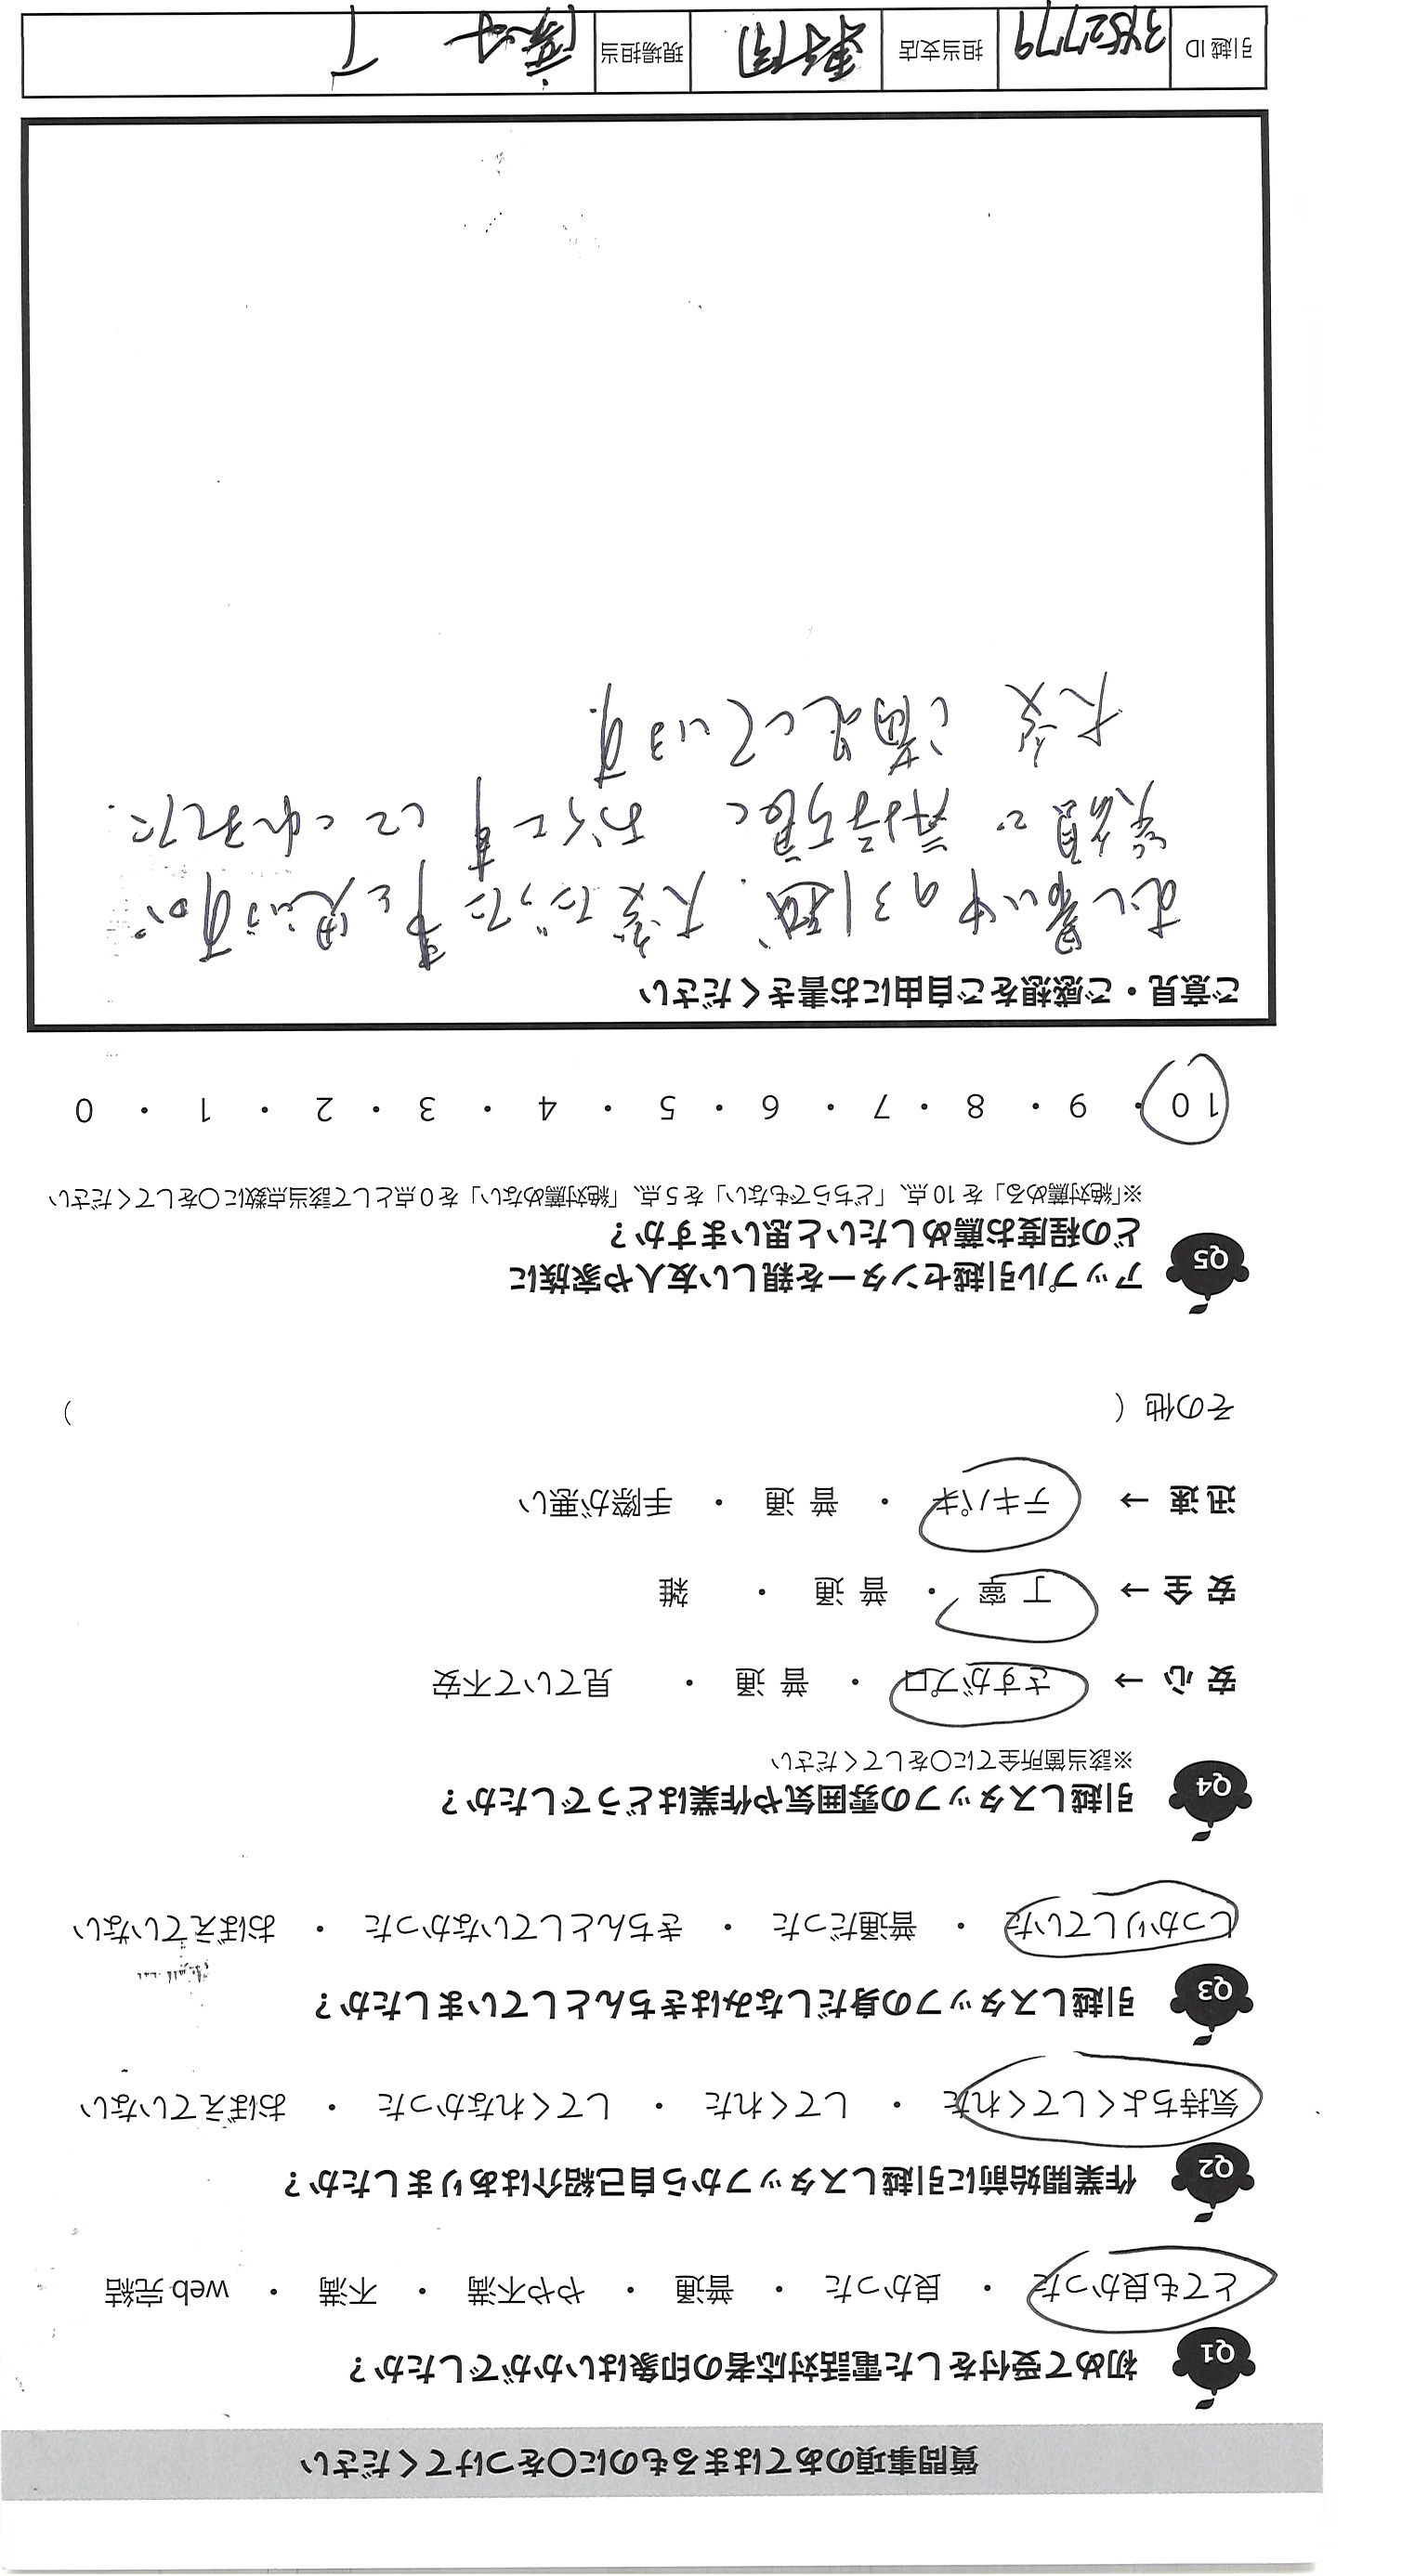 質問事項のあてはまるものに〇をつけてください
Q1 初めて受付をした電話対応者の印象はいかがでしたか？
とても良かった ・ 良かった ・ 普通 ・ やや不満 ・ 不満 ・ web完結
Q2 作業開始前に引越しスタッフから自己紹介はありましたか？
気持ちよくしてくれた ・ してくれた ・ してくれなかった ・ おぼえていない
Q3 引越しスタッフの身だしなみはきちんとしていましたか？
しっかりしていた ・ 普通だった ・ きちんとしていなかった ・ おぼえていない
Q4 引越しスタッフの雰囲気や作業はどうでしたか？
※該当箇所全てに〇をしてください
安心→ さすがプロ ・ 普通 ・ 見ていて不安
安全→ 丁寧 ・ 普通 ・ 雑
迅速→ テキパキ ・ 普通 ・ 手際が悪い
その他（ ）
Q5 アップル引越センターを親しい友人や家族に
どの程度お薦めしたいと思いますか？
※「絶対薦める」を10点、「どちらでもない」を5点、「絶対薦めない」を0点として該当点数に〇をしてください
10 ・ 9 ・ 8 ・ 7 ・ 6 ・ 5 ・ 4 ・ 3 ・ 2 ・ 1 ・ 0
ご意見・ご感想をご自由にお書きください
暑い中の引越、大変だった事と思いますが
笑顔で気持ち良く してくれました.
大変 満足しています.
引越ID 3452779 担当支店 現場担当